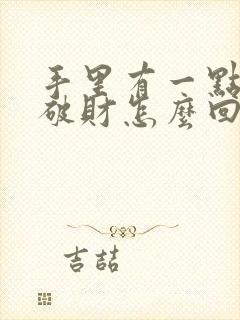 手里有一點
破財怎麼回
吉喆